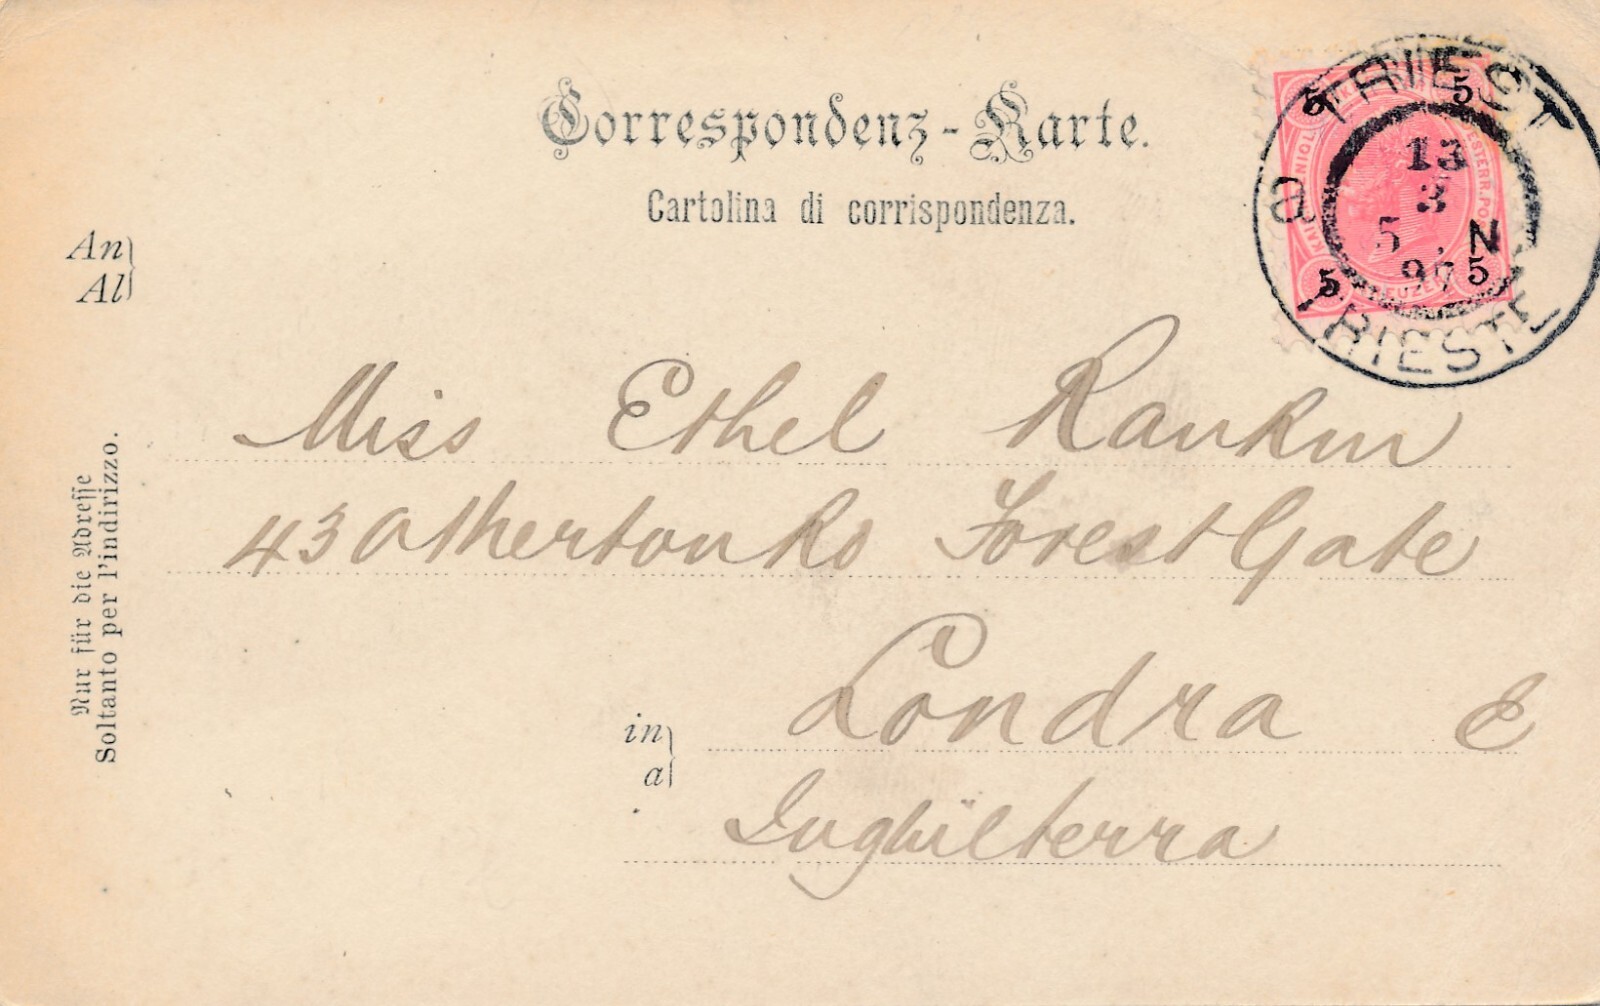 Correspondenz-Karte.
Cartolina di corrispondenza.
TRIEST
13
3
5 . N
97
a
TRIESTE
5 5
5 5
KREUZER
An
Al
Nur für die Adresse
Soltanto per l'indirizzo.
Miss Ethel Rankin
43 Atherton Rd Forest Gate
in
a
Londra E
Inghilterra